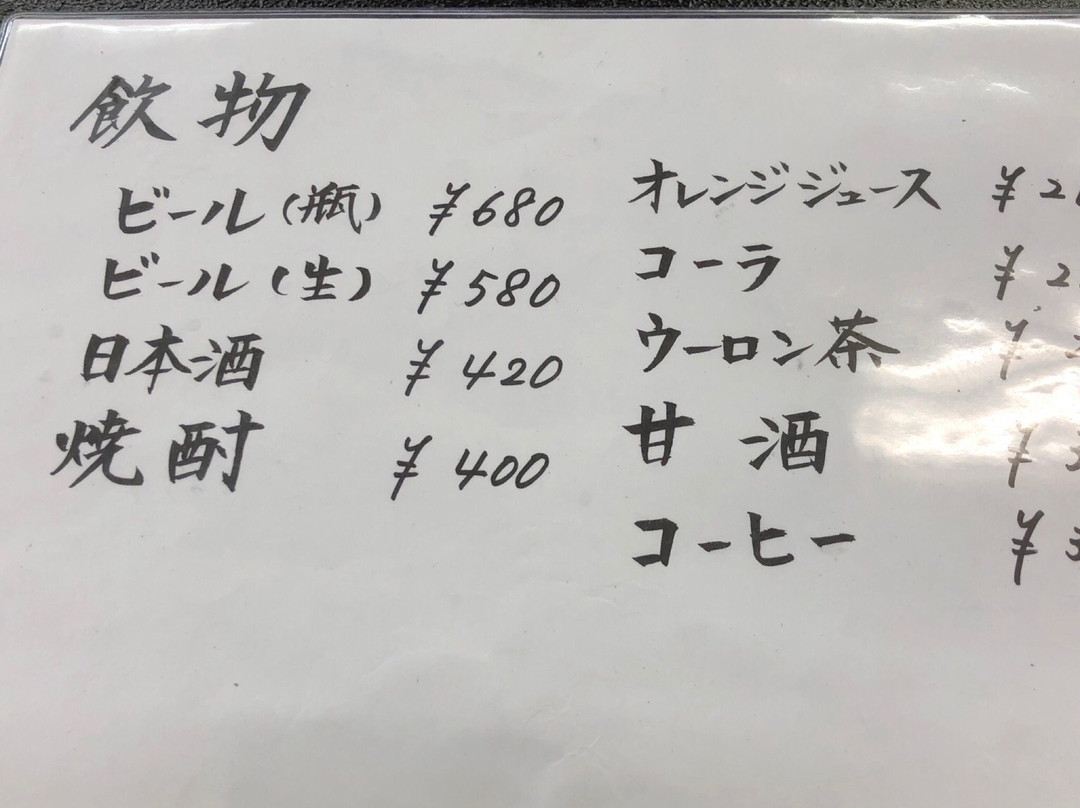 飲物
ビール(瓶) ¥680
ビール(生) ¥580
日本酒 ¥420
焼酎 ¥400
オレンジジュース ¥2
コーラ ¥2
ウーロン茶 ¥
甘酒 ¥3
コーヒー ¥3